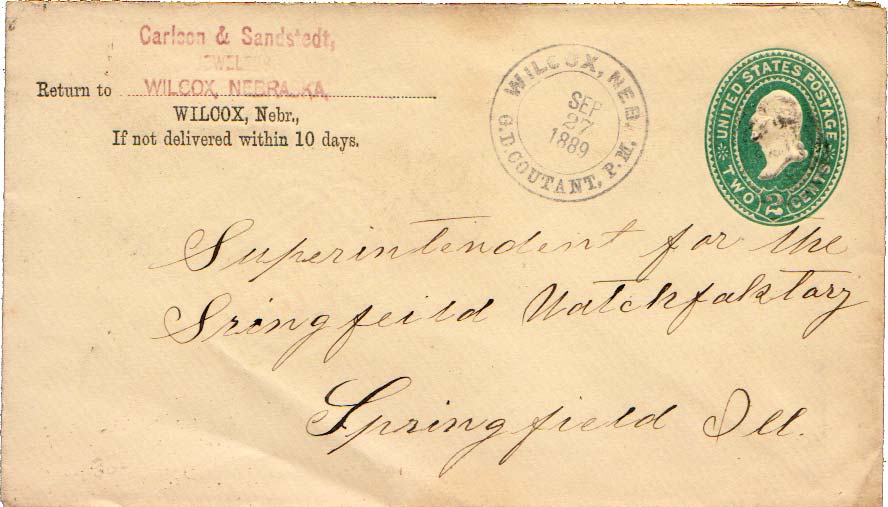 Carlson & Sandstedt,
JEWELERS
Return to WILCOX, NEBRASKA,
WILCOX, Nebr.,
If not delivered within 10 days.
WILCOX, NEB.
SEP
27
1889
G.D. COUTANT, P. M.
UNITED STATES POSTAGE
TWO 2 CENTS
Superintendent for the
Sringfeild Watchfaktory
Springfield Ill.